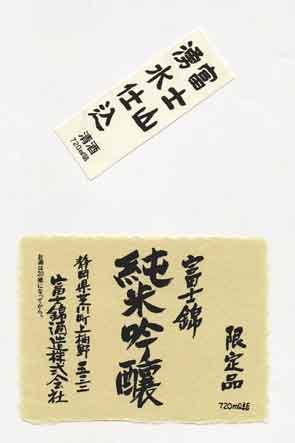 富士山
湧水仕込
清酒
720ml詰
限定品
720ml詰
富士錦
純米吟醸
静岡県芝川町上柚野五三二
富士錦酒造株式会社
お酒は20歳になってから。